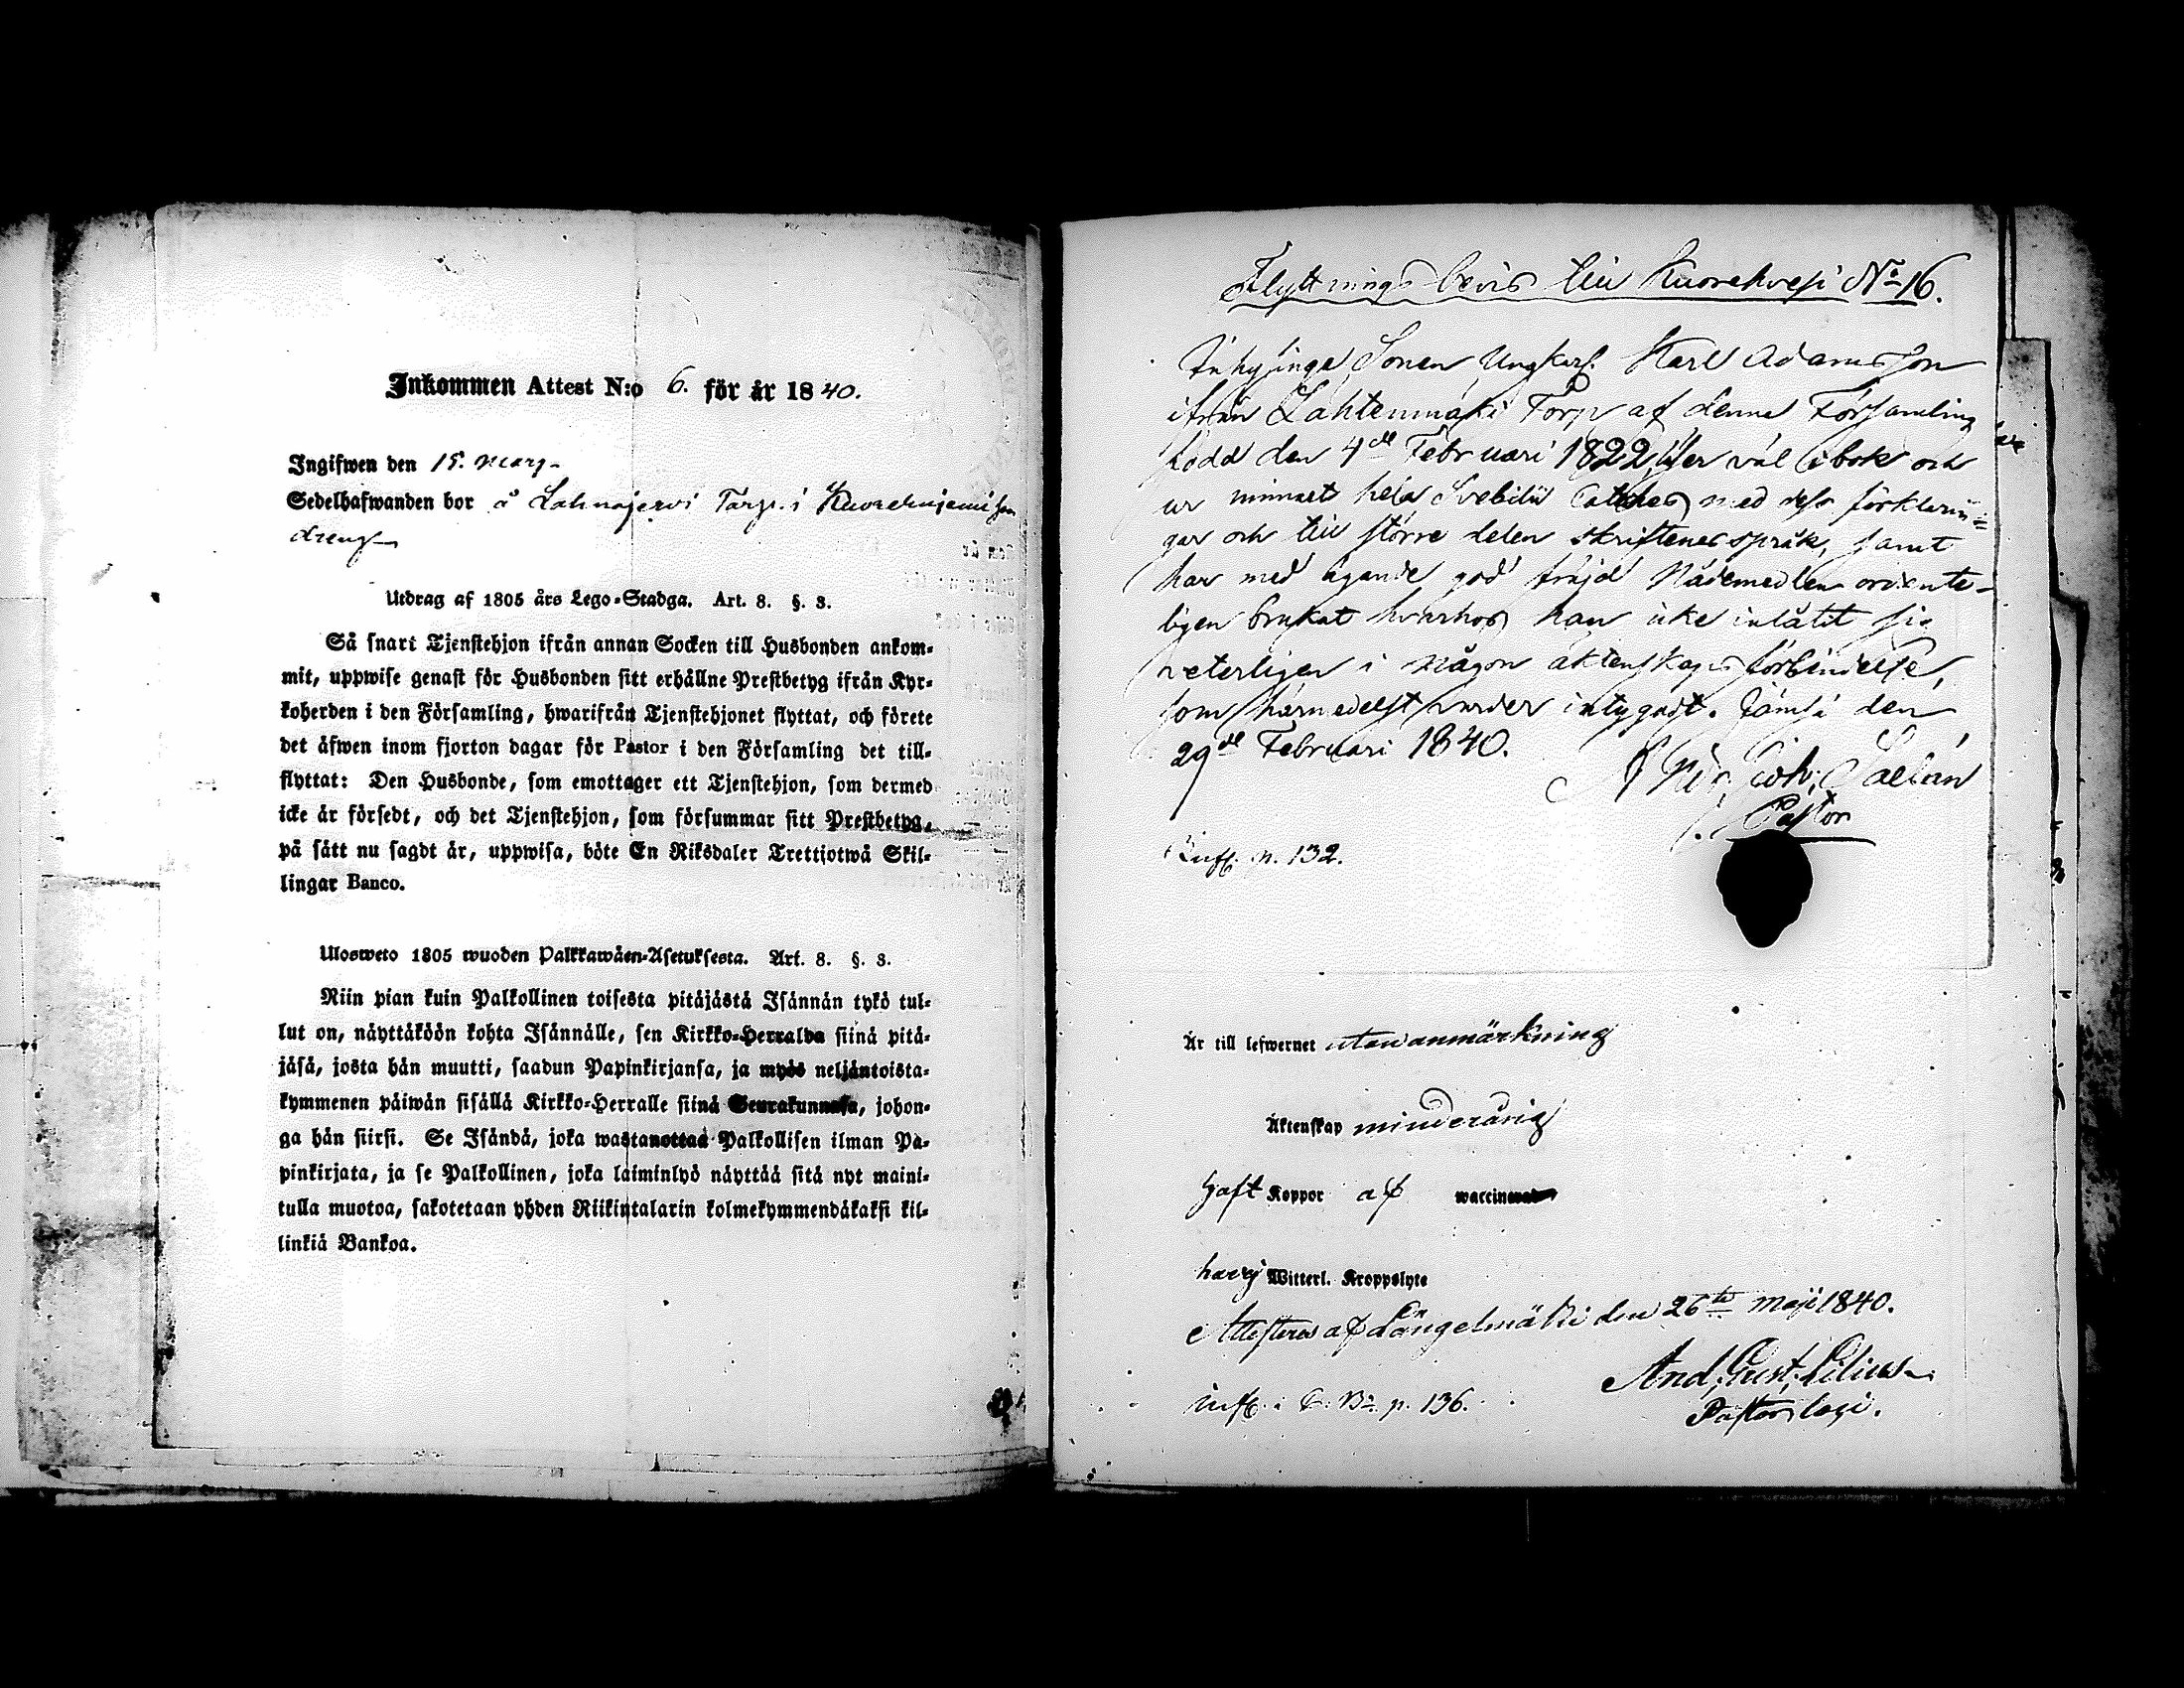 Inkommen Attest N:o 6. för år 1840.
Ingifwen den 15. Mars
Sedelhafwanden bor å Lahnajerwi Torp. i Kuorehniemi som
dreng
Utdrag af 1805 års Lego-Stadga. Art. 8. §. 3.
Så snart Tjenstehjon ifrån annan Socken till Husbonden ankom-
mit, uppwise genast för Husbonden sitt erhållne Prestbetyg ifrån Kyr-
koherden i den Församling, hwarifrån Tjenstehjonet flyttat, och förete
det äfwen inom fjorton dagar för Pastor i den Församling det till-
flyttat: Den Husbonde, som emottager ett Tjenstehjon, som dermed
icke är försedt, och det Tjenstehjon, som försummar sitt Prestbetyg,
på sätt nu sagdt är, uppwisa, böte En Riksdaler Trettjotwå Skil-
lingar Banco.
Ulosweto 1805 wuoden Palkkawäen-Asetuksesta. Art. 8. §. 3.
Niin pian kuin Palkollinen toisesta pitäjästä Isännän tykö tul-
lut on, näyttäköön kohta Isännälle, sen Kirkko-Herralda siinä pitä-
jäsä, josta hän muutti, saadun Papinkirjansa, ja myös neljäntoista-
kymmenen päiwän sisällä Kirkko-Herralle siinä Seurakunnasa, johon-
ga hän siirsi. Se Isändä, joka wastanottaa Palkollisen ilman Pa-
pinkirjata, ja se Palkollinen, joka laiminlyö näyttää sitä nyt maini-
tulla muotoa, sakotetaan yhden Riikintalarin kolmekymmendäkaksi kil-
linkiä Bankoa.
Flyttnings bevis till Kuorehvesi No 16.
Inhysinge Sonen Ungkarl. Karl Adamsson
ifrån Lahtenmäki Torp af denna Församling
född den 4de Februari 1822, läser väl i bok och
ur minnet hela Svebilii Catches med dess förklarin=
gar och till större delen skriftenes språk, samt
har med ägande god fräjd Nådemedlen ordente-
ligen brukat hvarhos han icke inlåtit sig
veterligen i någon äktenskaps förbindelse,
som härmedelst varder intygadt. Jämsä den
29de Februari 1840.
Joh: Saelan
Pastor
p. 132.
Är till lefwernet utan anmärkning
Äktenskap minderårig
haft Koppor af waccin
har ej Witterl. Kroppslyte
Attesteras af Längelmäki den 26te Maji 1840.
And. Gust. Lilius
Pastors loci.
p. 136.